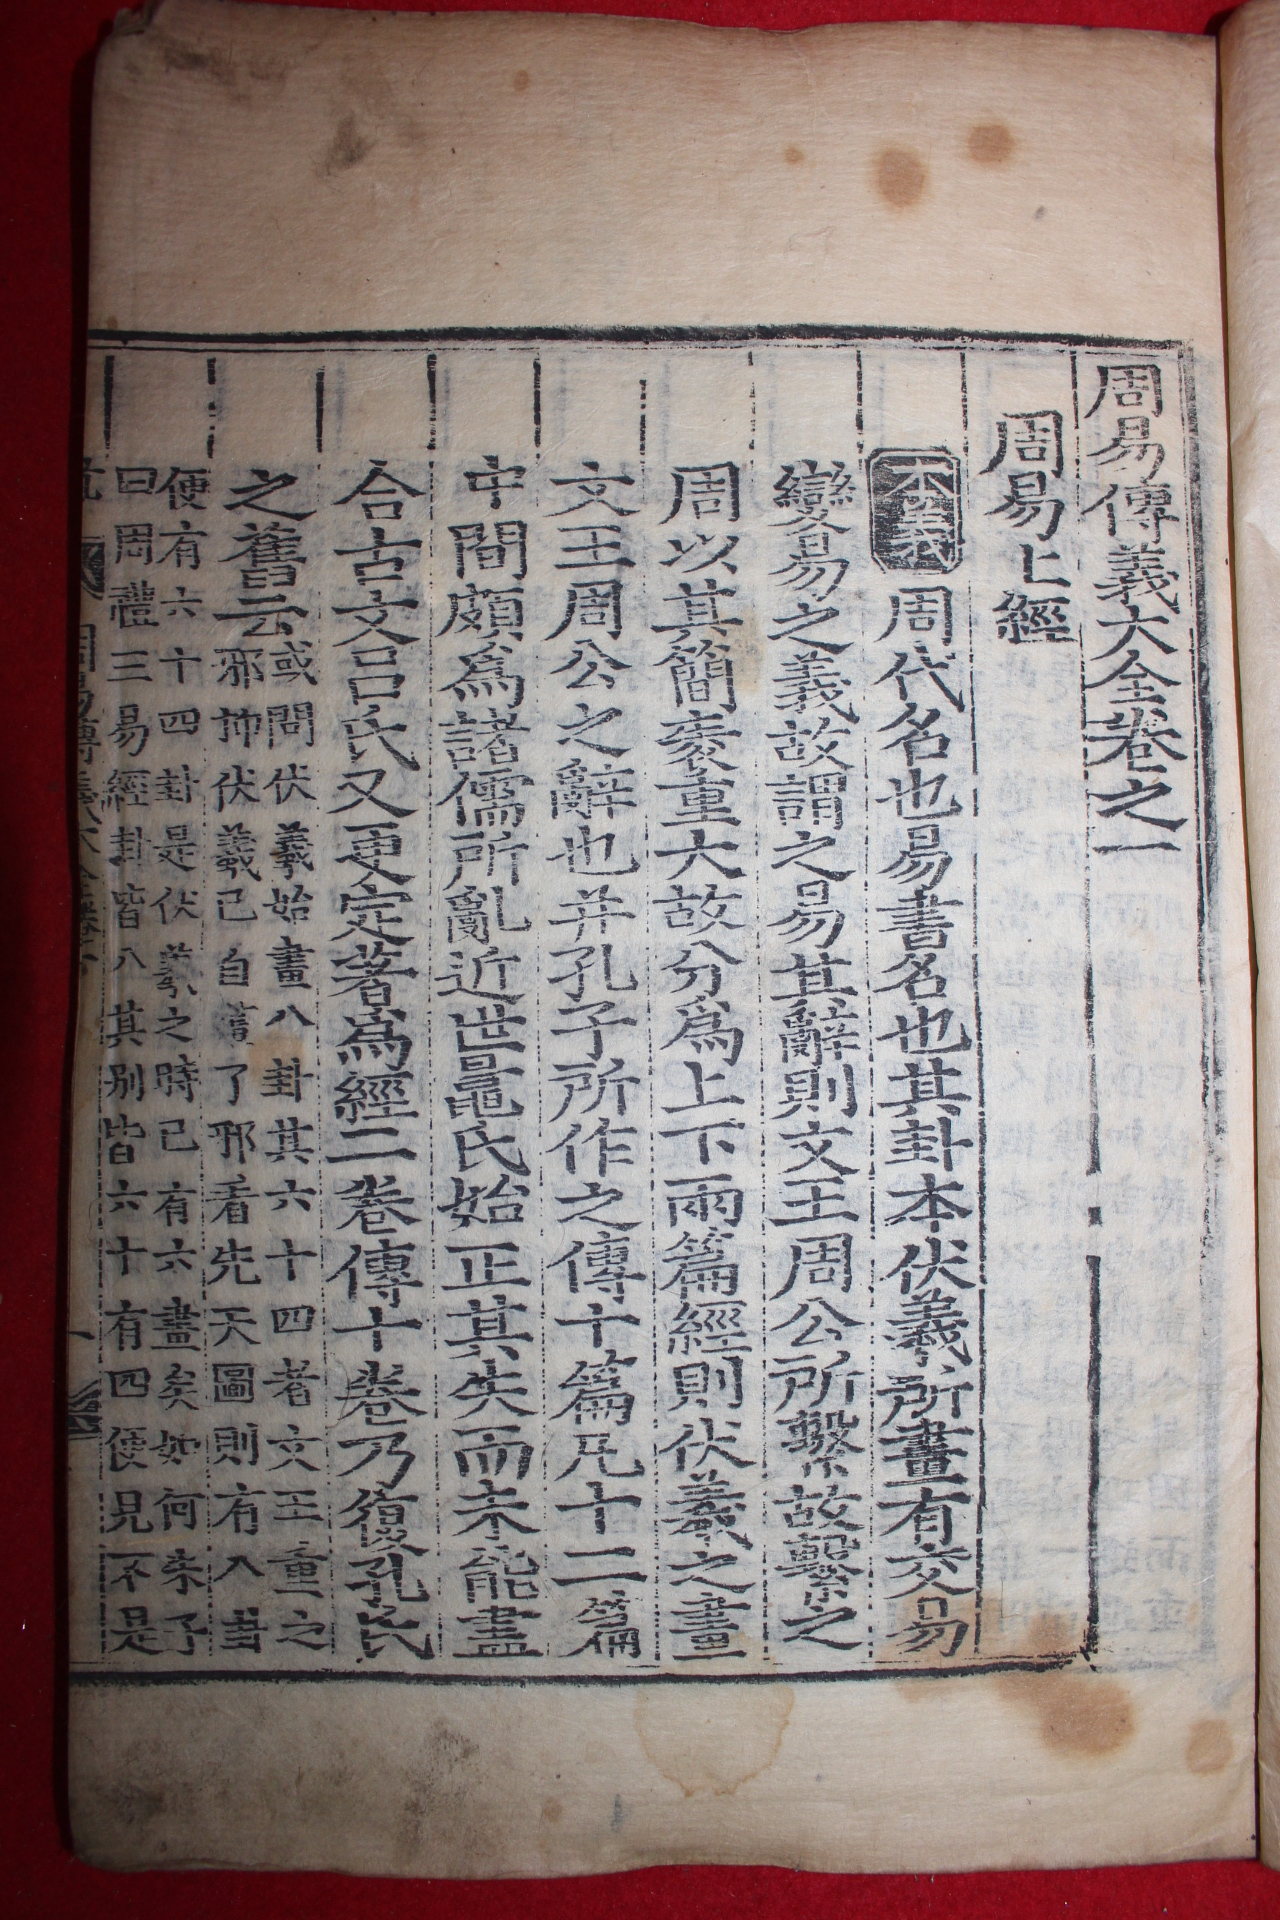 周易傳義大全卷之一
周易上經
本義
周代名也易書名也其卦本伏羲所畫有交易
變易之義故謂之易其辭則文王周公所繫故繫之
周以其簡袠重大故分爲上下兩篇經則伏羲之畫
文王周公之辭也并孔子所作之傳十篇凡十二篇
中間頗爲諸儒所亂近世鼂氏始正其失而未能盡
合古文呂氏又更定著爲經二卷傳十卷乃復孔氏
之舊云
或問伏羲始畫八卦其六十四者文王重之
邪抑伏羲已自畫了邪看先天圖則有八卦
便有六十四卦是伏羲之時已有六畫矣如何朱子
曰周禮三易經卦皆八其別皆六十有四便見不是
周易傳義大全卷 一